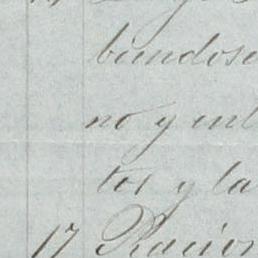 biendose
no y ent
tos y la
17 Racion